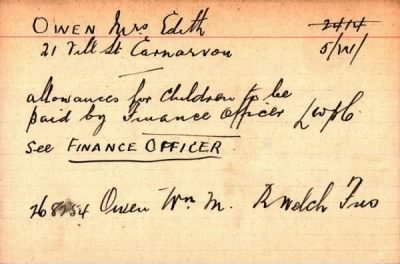 OWEN Mrs Edith 2414
21 Hill St Carnarvon 5/W/
allowances for children to be
paid by Finance Officer
See FINANCE OFFICER.
268254 Owen Wm M. R Welch Fus